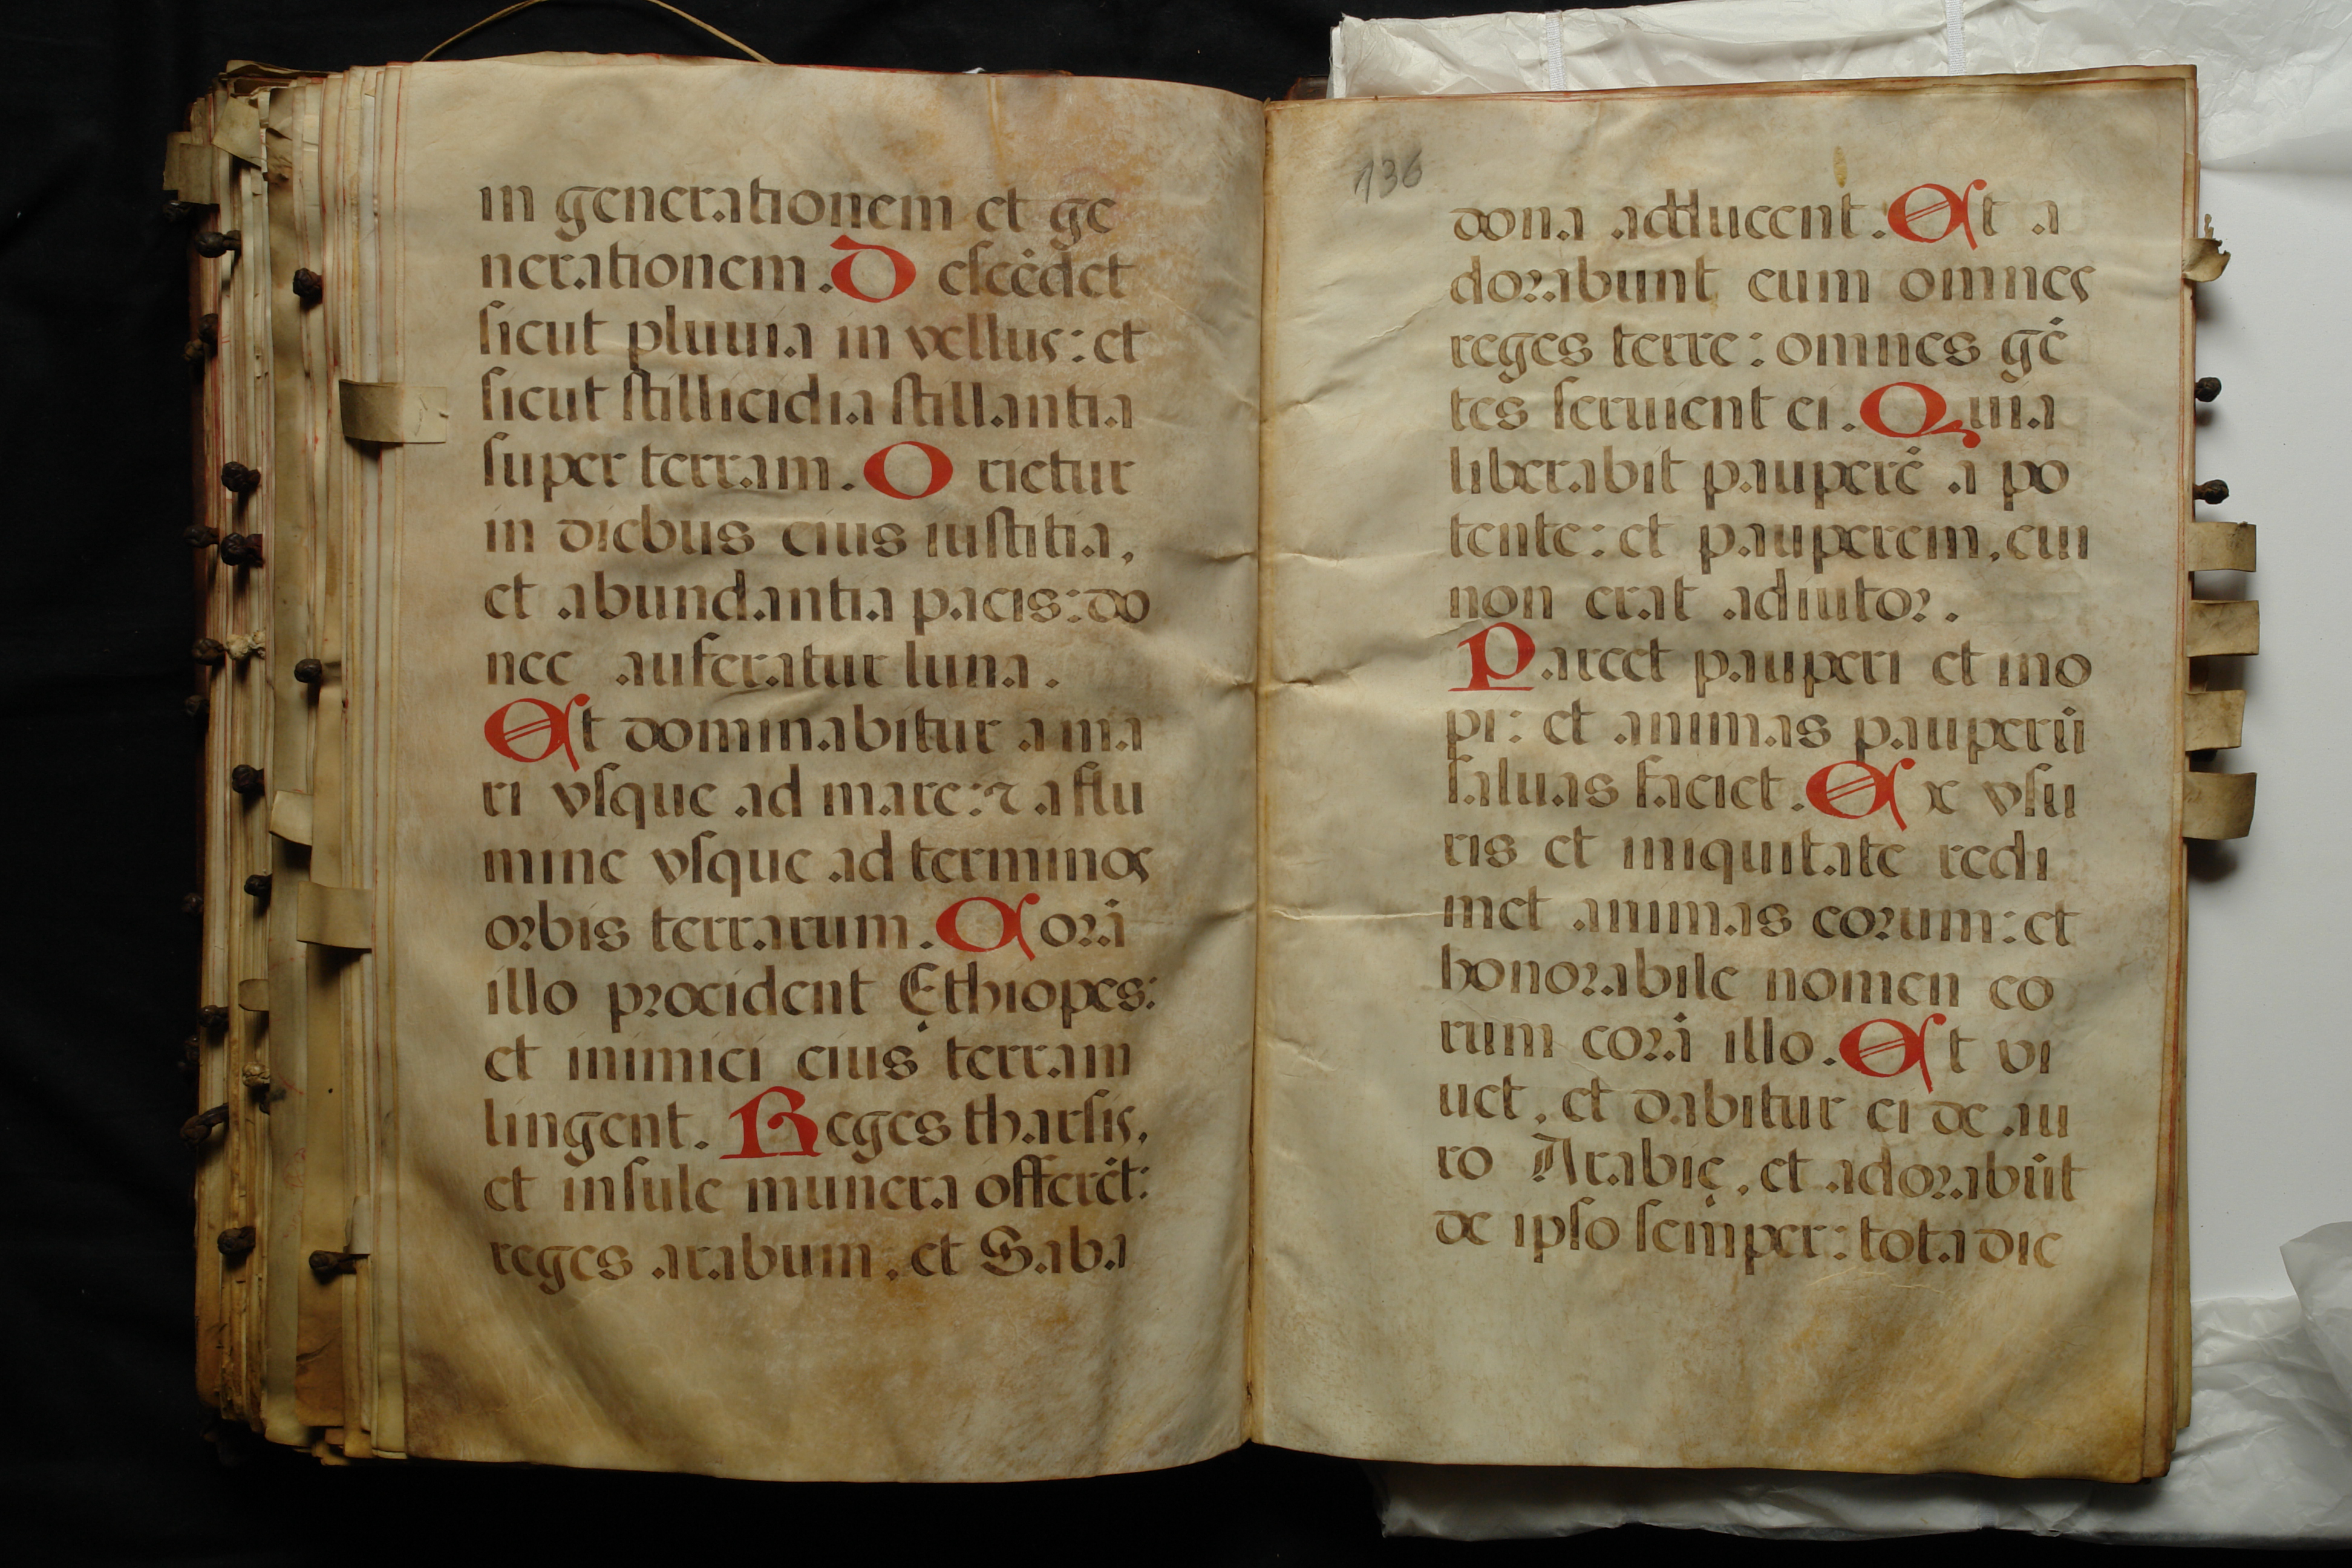 in generationem et ge
nerationem. Descēdet
sicut pluuia in vellus: et
sicut stillicidia stillantia
super terram. Orietur
in diebus eius iustitia,
et abundantia pacis: do
nec auferatur luna.
Et dominabitur a ma
ri vsque ad mare: ⁊ a flu
mine vsque ad terminos
orbis terrarum. Corā
illo procident Ethiopes:
et inimici eius terram
lingent. Reges tharsis,
et insule munera offerēt:
reges arabum, et Saba
136
dona adducent. Et a
dorabunt eum omnes
reges terre: omnes gē
tes seruient ei. Quia
liberabit pauperē a po
tente: et pauperem, cui
non erat adiutor.
Parcet pauperi et ino
pi: et animas pauperū
saluas faciet. Ex vsu
ris et iniquitate redi
met animas eorum: et
honorabile nomen eo
rum corā illo. Et vi
uet, et dabitur ei de au
ro Arabię, et adorabūt
de ipso semper: tota die